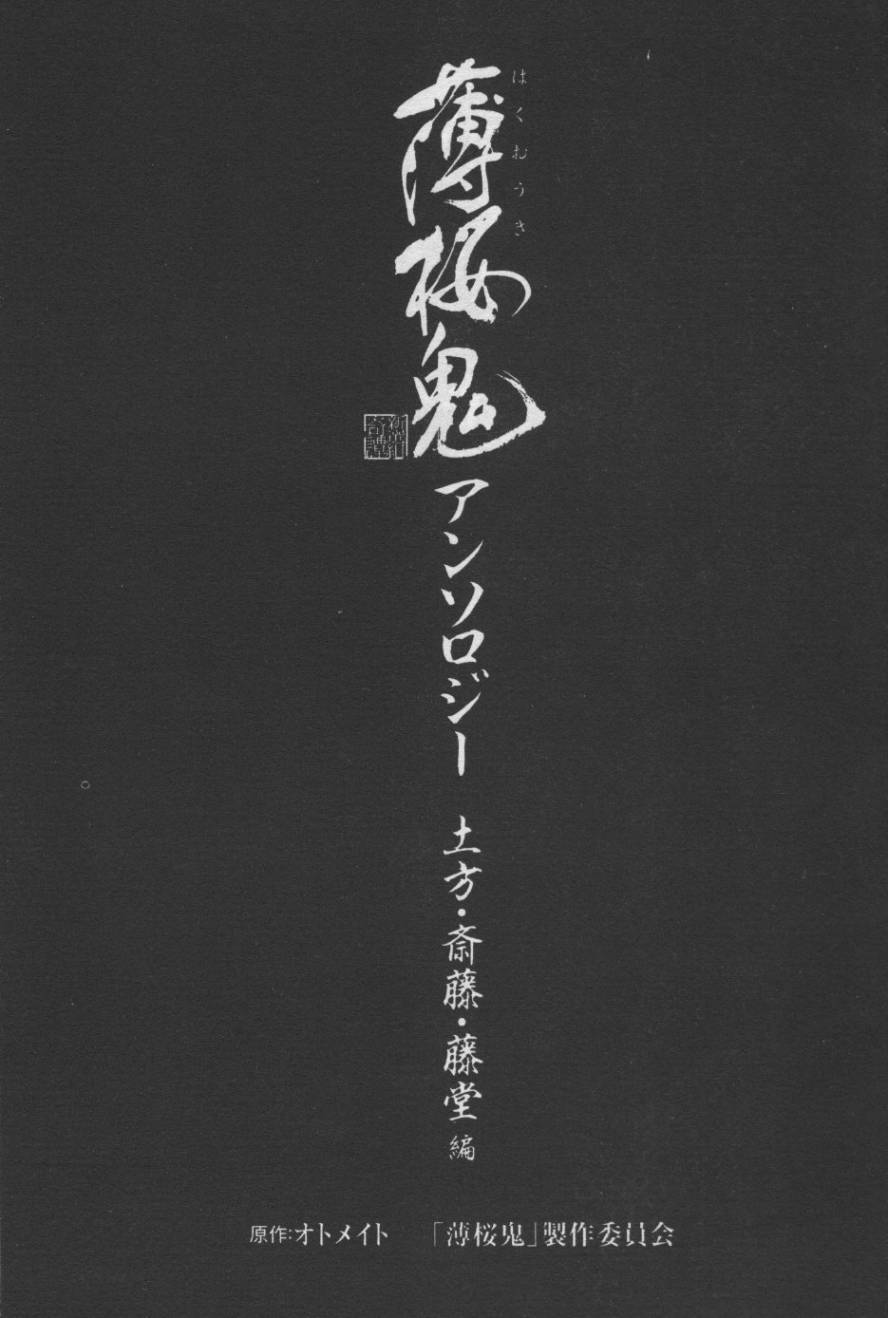 薄桜鬼
はくおうき
アンソロジー
土方・斎藤・藤堂編
原作:オトメイト 「薄桜鬼」製作委員会